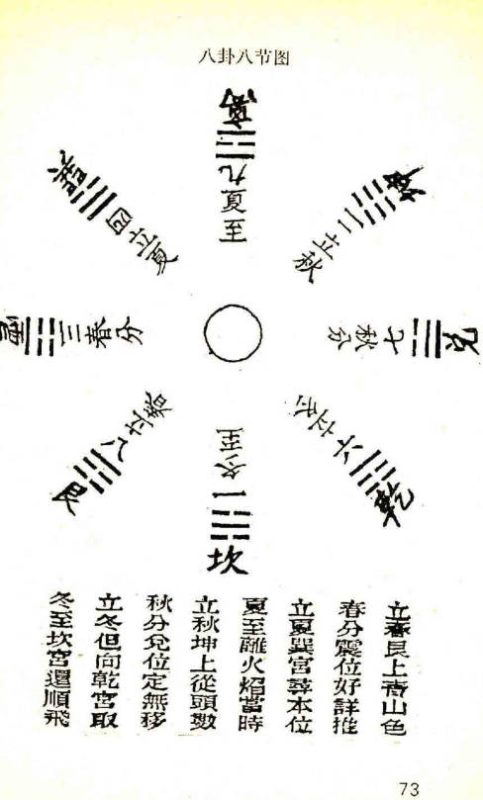 八卦八节图
离九夏至
巽四立夏
坤二立秋
震三春分
兑七秋分
艮八立春
乾六立冬
坎一冬至
立春艮上青山色
春分震位好詳推
立夏巽宮尋本位
夏至離火焰當時
立秋坤上從頭數
秋分兌位定無移
立冬但向乾宮取
冬至坎宮還順飛
73